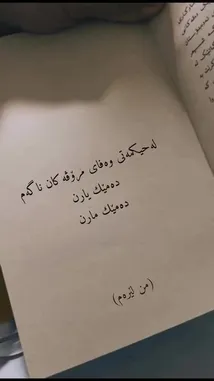 لە حیکمەتی وەفای مرۆڤەکان ناگەم
دەمێك یارن
دەمێك مارن
(من لێرەم)